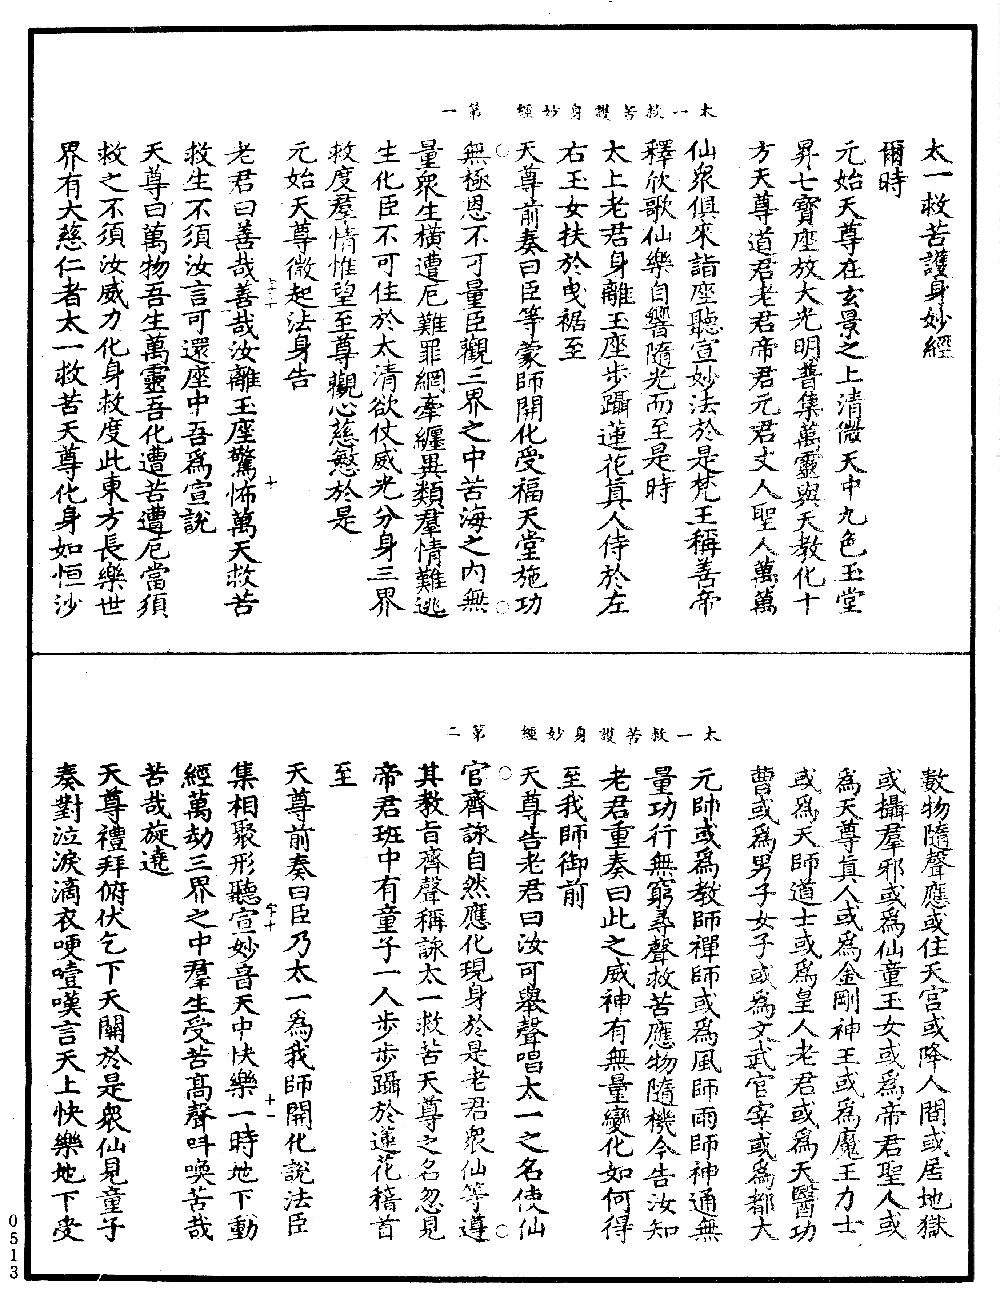 太一救苦護身妙經　第一
太一救苦護身妙經
爾時
元始天尊在玄景之上清微天中九色玉堂
昇七寶座放大光明普集萬靈與天教化十
方天尊道君老君帝君元君丈人聖人萬萬
仙眾俱來詣座聽宣妙法於是梵王稱善帝
釋欣歌仙樂自響隨光而至是時
太上老君身離玉座步躡蓮花真人侍於左
右玉女扶於曳裾至
天尊前奏曰臣等蒙師開化受福天堂施功
無極恩不可量臣觀三界之中苦海之內無
量眾生橫遭厄難罪網牽纏異類羣情難逃
生化臣不可住於太清欲仗威光分身三界
救度羣情惟望至尊觀心慈愍於是
元始天尊微起法身告
老君曰善哉善哉汝離玉座驚怖萬天救苦
救生不須汝言可還座中吾為宣說
天尊曰萬物吾生萬靈吾化遭苦遭厄當須
救之不須汝威力化身救度此東方長樂世
界有大慈仁者太一救苦天尊化身如恒沙
太一救苦護身妙經　第二
數物隨聲應或住天宮或降人間或居地獄
或攝羣邪或為仙童玉女或為帝君聖人或
為天尊真人或為金剛神王或為魔王力士
或為天師道士或為皇人老君或為天醫功
曹或為男子女子或為文武官宰或為都大
元帥或為教師禪師或為風師雨師神通無
量功行無窮尋聲救苦應物隨機今告汝知
老君重奏曰此之威神有無量變化如何得
至我師御前
天尊告老君曰汝可舉聲唱太一之名使仙
官齊詠自然應化現身於是老君眾仙等遵
其教旨齊聲稱詠太一救苦天尊之名忽見
帝君班中有童子一人步步躡於蓮花稽首
至
天尊前奏曰臣乃太一為我師開化說法臣
集相聚形聽宣妙音天中快樂一時地下動
經萬劫三界之中羣生受苦高聲叫喚苦哉
苦哉旋遶
天尊禮拜俯伏乞下天關於是眾仙見童子
奏對泣淚滴衣哽噎嘆言天上快樂地下受
0513